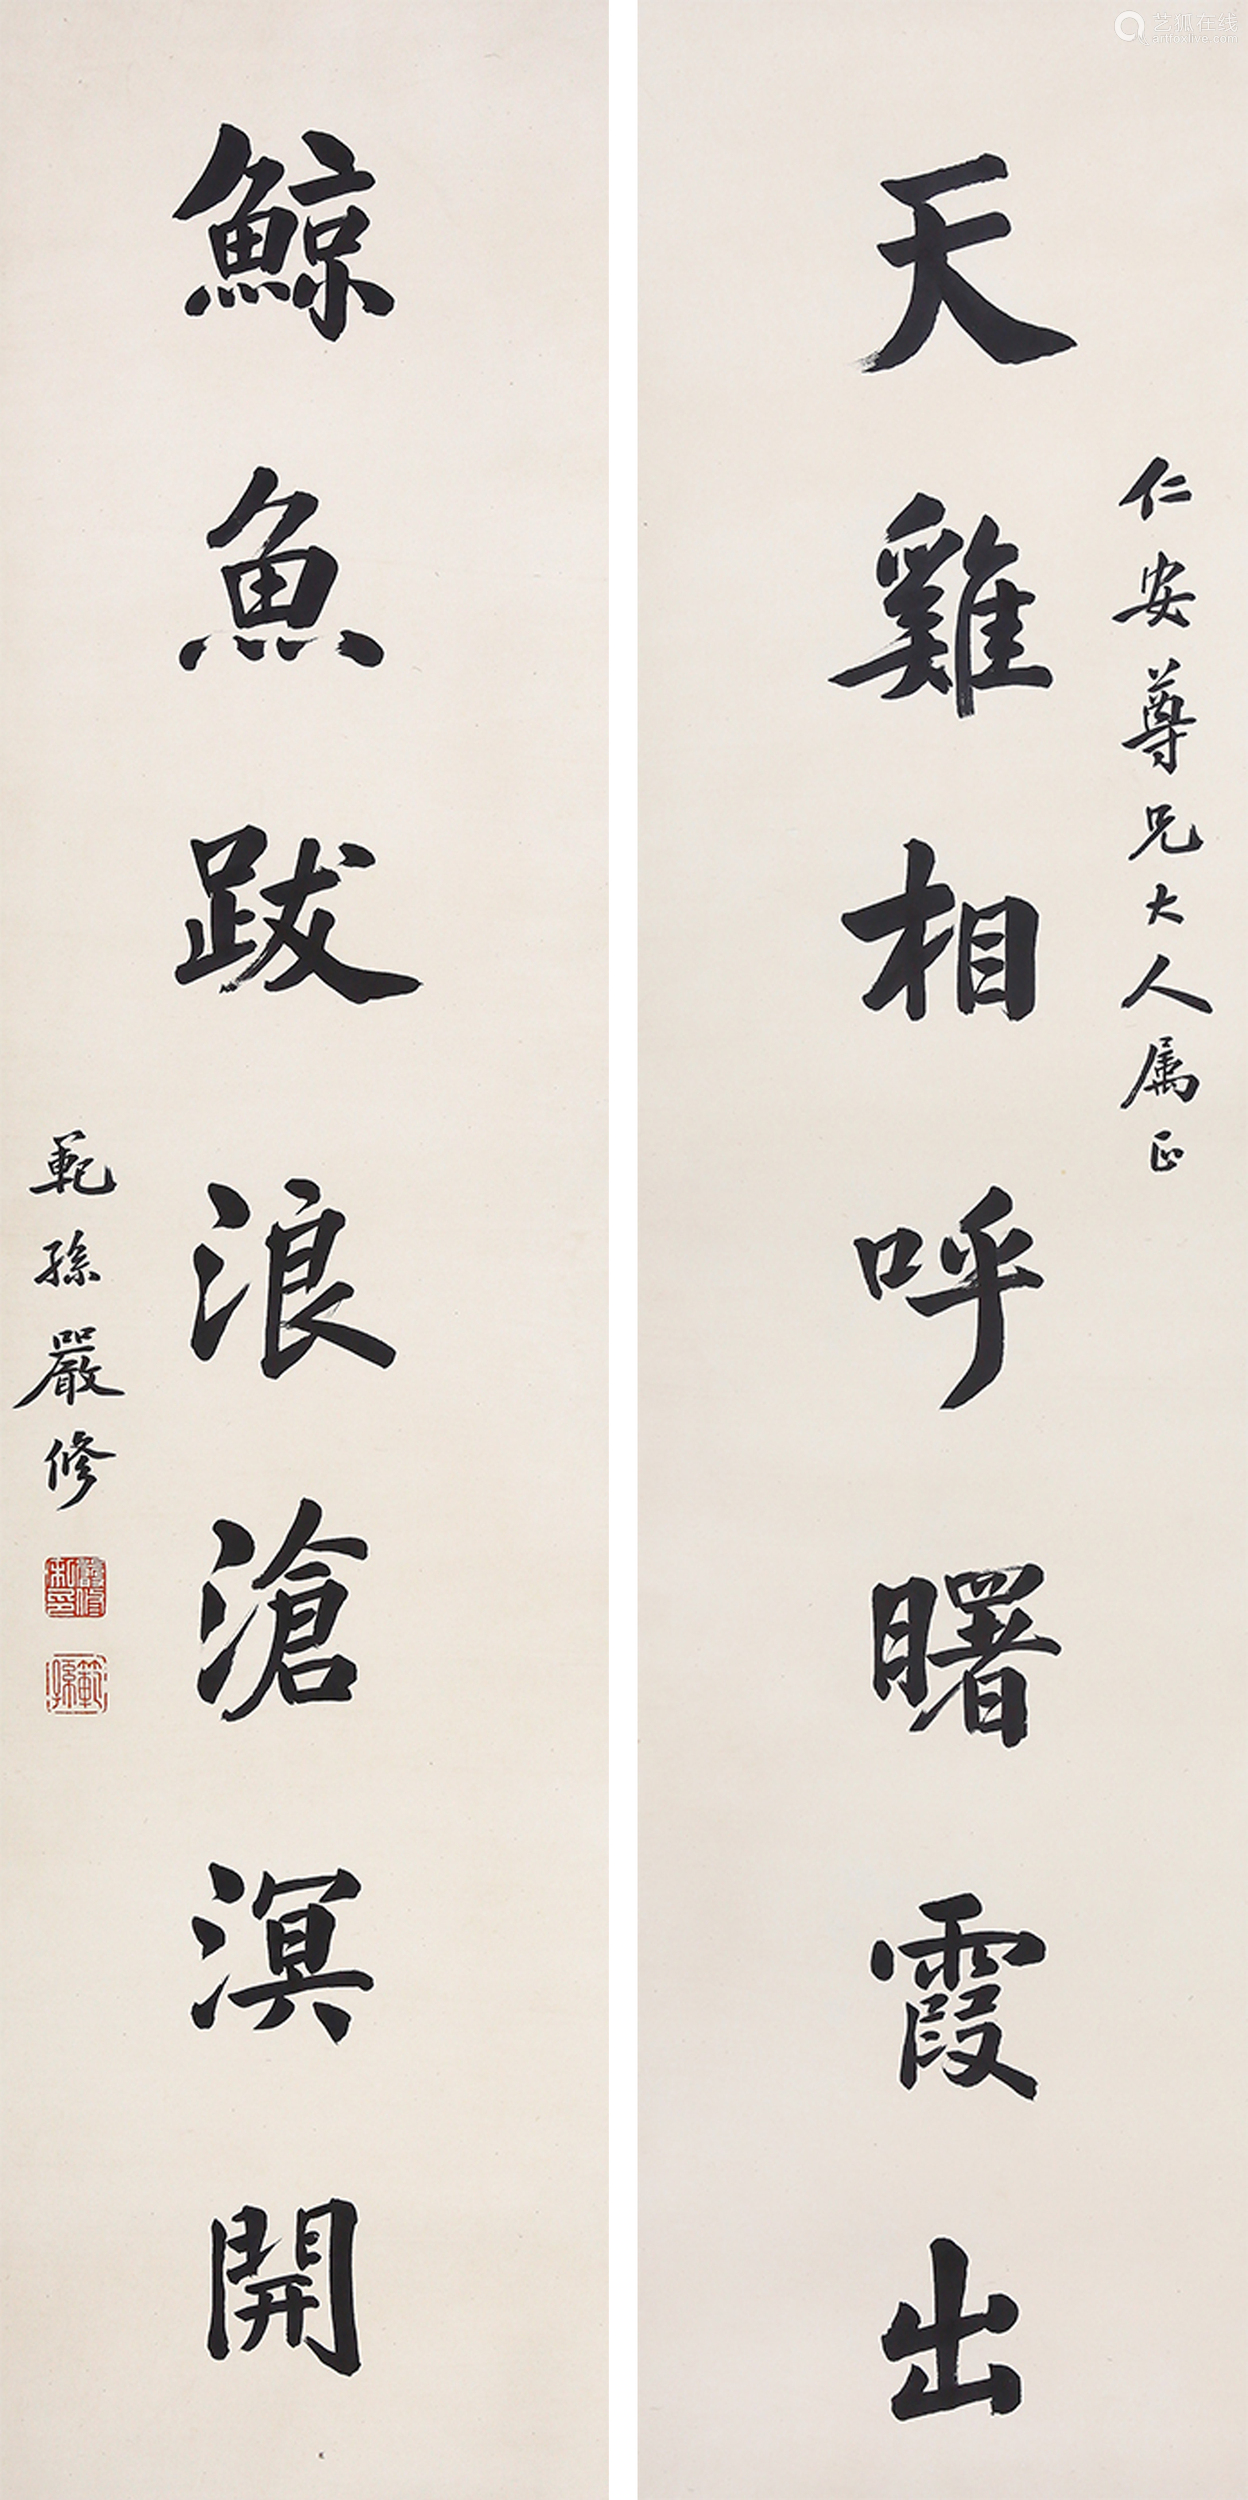 仁安尊兄大人属正
天雞相呼曙霞出
鯨魚跋浪滄溟開
範孫嚴修
範孫
艺狐在线
artfoxlive.com